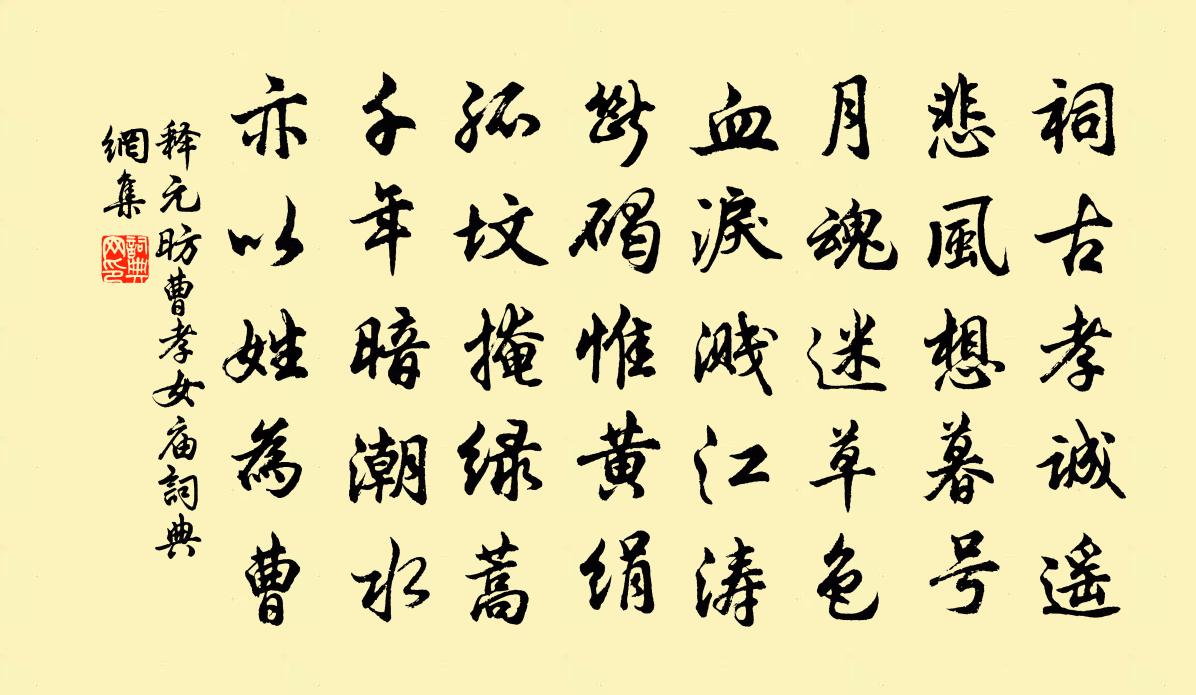 祠古孝诚遥
悲風想暮号
月魂迷草色
血淚溅江涛
斷碣惟黄绢
孤坟掩绿蒿
千年暗潮水
亦以姓為曹
释元昉曹孝女庙詞典
網集
詞典
网印